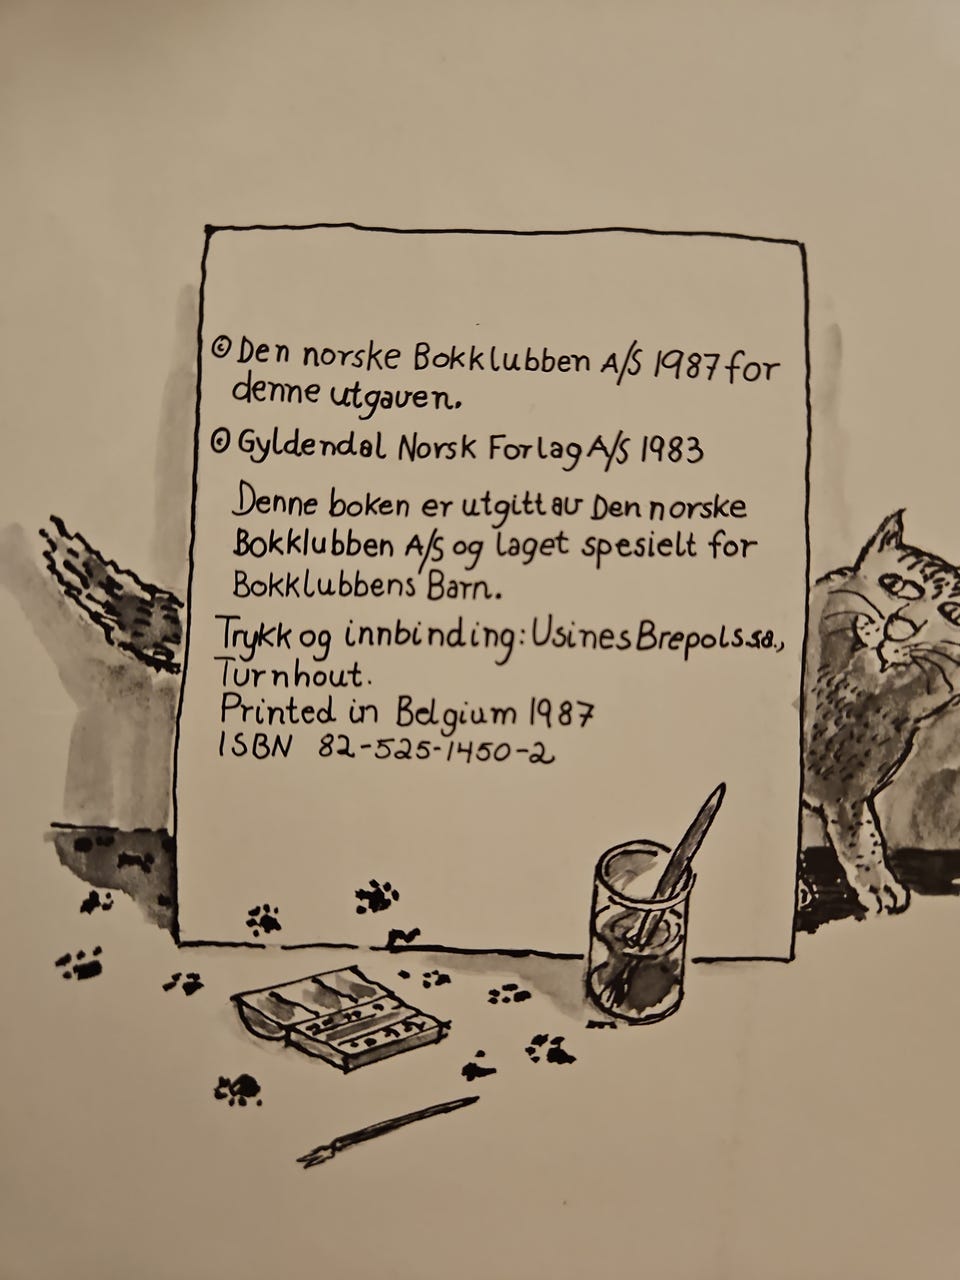 © Den norske Bokklubben A/S 1987 for
denne utgaven.
© Gyldendal Norsk Forlag A/S 1983
Denne boken er utgitt av Den norske
Bokklubben A/S og laget spesielt for
Bokklubbens Barn.
Trykk og innbinding: Usines Brepols s.a.,
Turnhout.
Printed in Belgium 1987
ISBN 82-525-1450-2